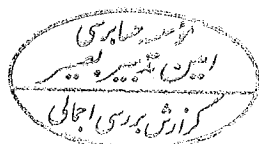 مؤسسه حسابرسی
آیین تدبیر بصیر
گزارش بررسی اجمالی